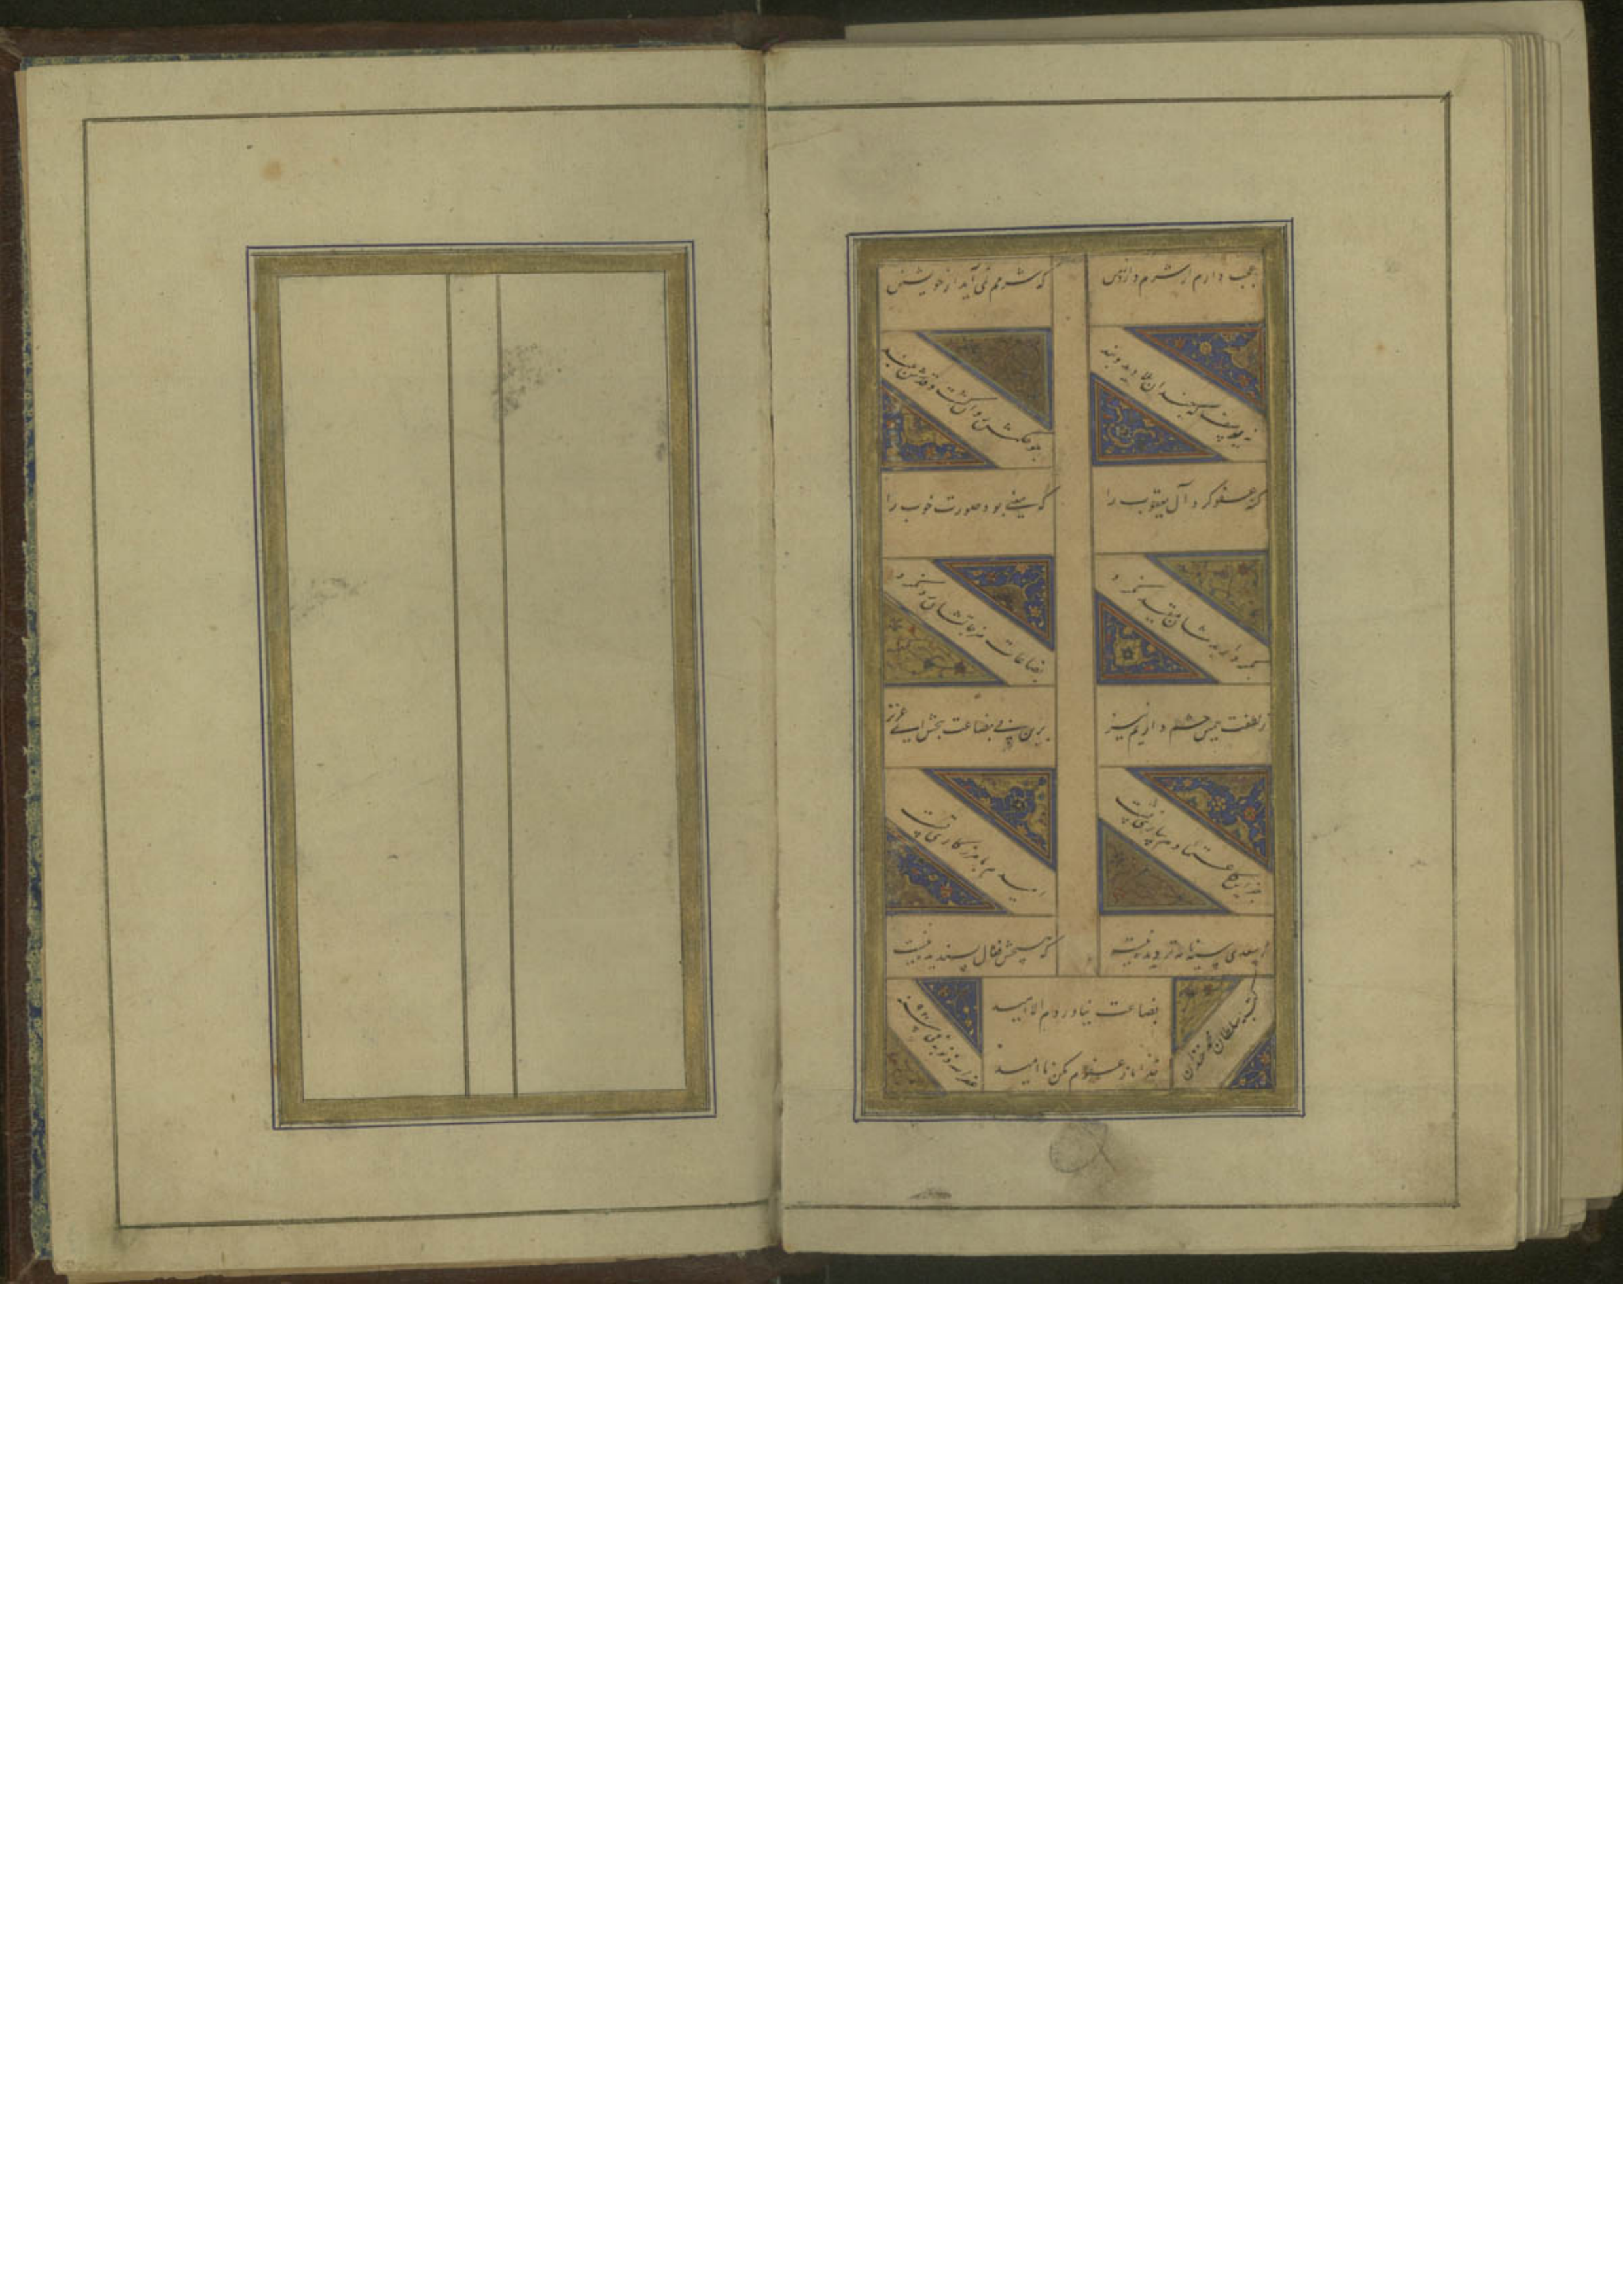 عجب دارم ار شرم دارد ز من
که شرمم نمی آید از خویشتن
نه یوسف که چندان بلا دید و بند
چو حکمش روان گشت و قدرش بلند
گنه عفو کرد آل یعقوب را
که معنی بود صورت خوب را
بکردار بدشان مقید نکرد
بضاعات مزجاتشان رد نکرد
ز لطفت همین چشم داریم نیز
برین بی بضاعت ببخش ای عزیز
امیدم بآمرزگاری تست
چو سعدی سیه نامه تر دیده نیست
که هیچش فعال پسندیده نیست
بضاعت نیاوردم الا امید
خدایا ز عفوم مکن ناامید
کتبه سلطان محمد خندان
غفر الله ذنوبه فی سنه